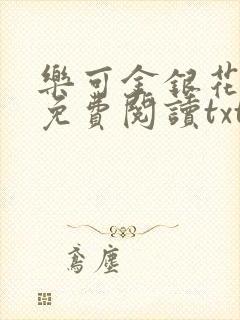 樂可金銀花
免費閱讀txt
鳶塵